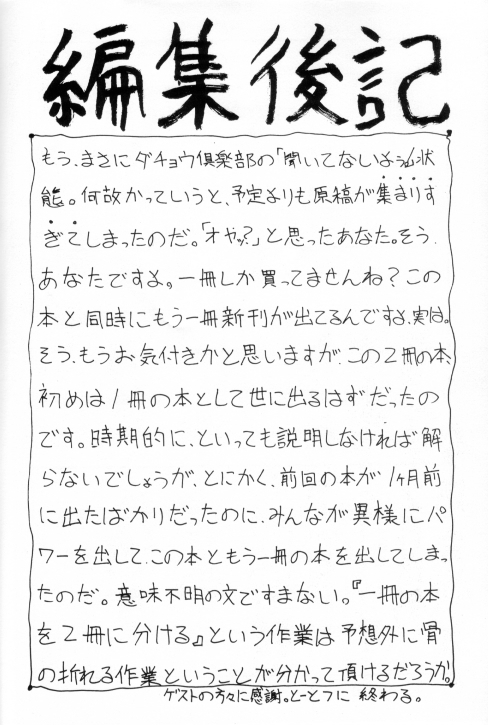 編集後記
もう、まさにダチョウ倶楽部の「聞いてないよぅ」状
態。何故かっていうと、予定よりも原稿が集まりす
ぎてしまったのだ。「オヤッ?」と思ったあなた。そう、
あなたですよ。一冊しか買ってませんね?この
本と同時にもう一冊新刊が出てるんですよ、実は。
そう、もうお気付きかと思いますが、この2冊の本、
初めは1冊の本として世に出るはずだったの
です。時期的に、といっても説明しなければ解
らないでしょうが、とにかく、前回の本が1ヶ月前
に出たばかりだったのに、みんなが異様にパ
ワーを出して、この本ともう一冊の本を出してしまっ
たのだ。意味不明の文ですまない。『一冊の本
を2冊に分ける』という作業は予想外に骨
の折れる作業ということが分かって頂けるだろうか。
ゲストの方々に感謝。とーとつに 終わる。